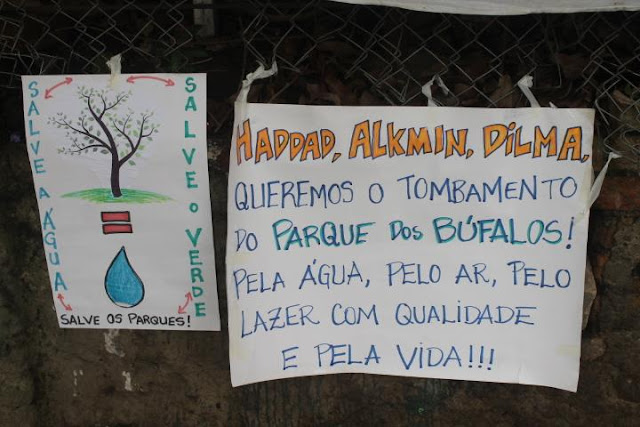 SALVE A ÁGUA
SALVE O VERDE
SALVE OS PARQUES!
HADDAD, ALKMIN, DILMA,
QUEREMOS O TOMBAMENTO
DO PARQUE DOS BÚFALOS!
PELA ÁGUA, PELO AR, PELO
LAZER COM QUALIDADE
E PELA VIDA!!!